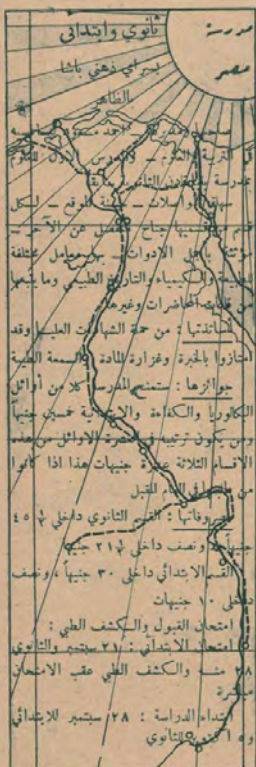 مدرسة
مصر
ثانوي وابتدائي
بسراي ذهني باشا
بالظاهر
صاحبها ومديرها - احمد
في التربية والعلوم - والمدرس الاول للعلوم
بمدرسة الثانوية سابقا
سهلة المواصلات - الموقع - لكل
قسم من قسميها جناح منفصل عن الآخر -
مؤثثة بأجمل الادوات - بها معامل مختلفة
للطبيعة والكيمياء والتاريخ الطبيعي وما يتبعها
من قاعات المحاضرات وغيرها
أساتذتها : من حملة الشهادات العليا وقد
امتازوا بالخبرة وغزارة المادة والسمعة الطيبة
جوائزها : ستمنح المدرسة كلا من أوائل
البكالوريا والكفاءة والابتدائية خمسين جنيهاً
ومن يكون ترتيبه في العشرة الاوائل من هذه
الاقسام الثلاثة عشرة جنيهات هذا اذا كانوا
من في العام المقبل
مصروفاتها : القسم الثانوي داخلي ٤٥
جنيهاً ونصف داخلي ٢١ جنيهاً
القسم الابتدائي داخلي ٣٠ جنيهاً ونصف
داخلي ١٠ جنيهات
امتحان القبول والكشف الطبي :
امتحان الابتدائي : ٢١ سبتمبر والثانوي
٢٨ منه والكشف الطبي عقب الامتحان
مباشرة
ابتداء الدراسة : ٢٨ سبتمبر للابتدائي
و ٥ اكتوبر للثانوي